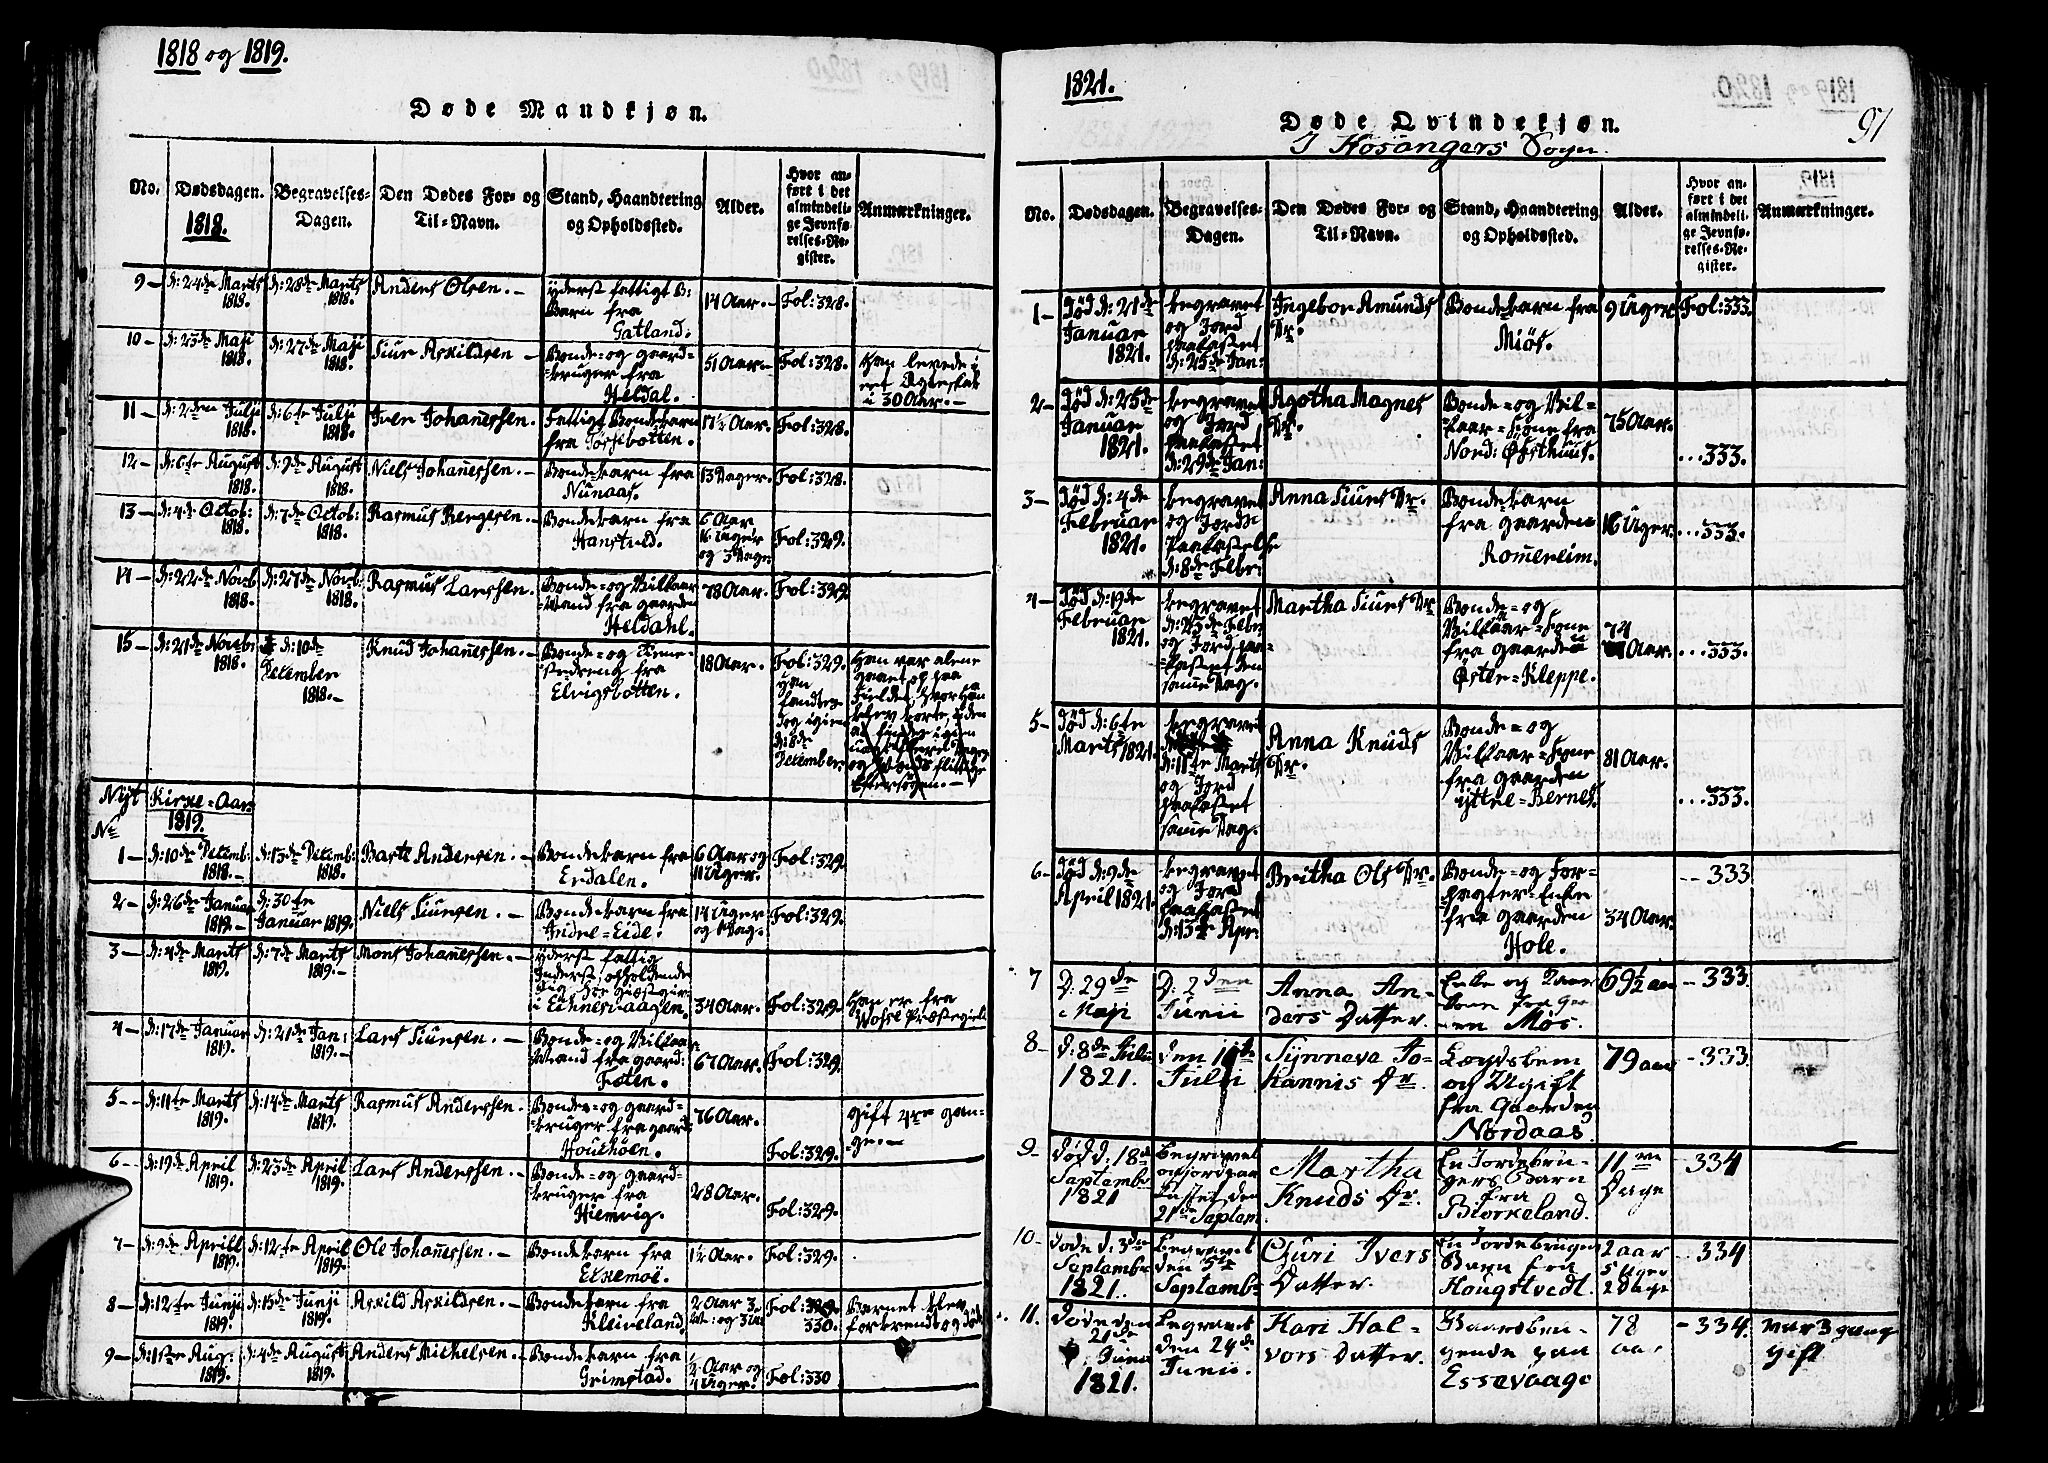 1818 og 1819.
Døde Mandkjøn.
No.
Dødsdagen.
1818.
Begravelses-
Dagen.
Den Dødes For- og
Til-Navn.
Stand, Haandtering
og Opholdssted.
Alder.
Hvor an-
ført i det
almindeli-
ge Jevnfø-
relses-Re-
gister.
Anmærkninger.
9 — d: 24de Marts 1818. d: 28de Marts 1818. Anders Olsen. — yderst fattigt B:
Barn fra
Gatland. 14 Aar. — Fol: 328.
10 — d: 23de Maji 1818. d: 27de Maji 1818. Siur Askildsen — Bonde- og gaard-
bruger fra
Heldal. 51 Aar — Fol: 328. Han levede i
eet Ægteskab
i 30 Aar. —
11 — d: 2den Julji 1818. d: 6te Julji 1818. Iver Johannessen. Fattigt Bondebarn
fra Tossebotten. 17½ Aar. Fol: 328.
12 — d: 6te August 1818. d: 9de August 1818. Niels Johannessen. — Bondebarn fra
Nunaas. 13 Dager. Fol: 328.
13 — d: 4de Octob: 1818. d: 7de Octob: 1818. Rasmus Bergesen. — Bondebarn fra
Hanstvld. 6 Aar
16 Uger
og 3 Dage Fol: 329.
14 — d: 22de Novb: 1818. d: 27de Novb: 1818. Rasmus Larssen. Bonde- og Vilkaar-
Mand fra gaarden
Heldahl. 78 Aar. Fol: 329.
15 — d: 21de Novb: 1818. d: 10de
Decemher
1818. — Knud Johannessen. — Bonde- og Tiene-
stedreng fra
Elvigsbotten. 18 Aar. Fol: 329.
Han
fandtes
dog igien
d: 8de
Decemher. Han var alene
gaaet op paa
Fieldet, hvor han
blev borte, uden
at findes igien
uagtet fleere Dages
og Mands flittige
Eftersøgen. —
Nyt Kirke-Aar
No 1819.
1 — d: 10de Decemb: 1818. — d: 13de Decemb: 1818. Baste Andersen. — Bondebarn fra
Erdalen. 6 Aar og
11 Uger. Fol: 329.
2 — d: 26de Januar 1819. — d: 30te
Januar 1819. Niels Siursen. — Bondebarn fra
Indre-Eide. 14 Uger
og 1 Dag. Fol: 329.
3 — d: 4de Marts 1819. d: 7de Marts 1819. — Mons Johannessen. — yderst fattig
Inderst, opholdende
sig hos giæstgiv:
i Eichnesvaagen. 34 Aar. Fol: 329. Han er fra
Wosse Præstegield
4 — d: 17de Januar 1819. d: 21de Jan: 1819. — Lars Siursen. — Bonde- og Vilkaar-
Mand fra gaard:
Foten. 67 Aar. Fol: 329.
5 — d: 11te Marts 1819. d: 14de Marts 1819. Rasmus Anderssen. Bonde- og gaard-
bruger fra gaard:
Houkøen. 76 Aar. Fol: 329. gift 4re gan-
ge. —
6 — d: 19de April 1819. d: 23de April 1819. Lars Anderssen. — Bonde- og gaard-
bruger fra
Hiemvig. 28 Aar. Fol: 329.
7 — d: 9de Aprill 1819. d: 12te April 1819. Ole Johannessen. — Bondebarn fra
Eknemoe. 1½ Aar. Fol: 329.
8 — d: 12te Junji 1819. d: 15de Junji 1819. Askild Askildsen. — Bondebarn fra
Kleiveland. 2 Aar Fol: 329.
330. Barnet blev
forbrendt og døde
9 — d: 1ste Aug: 1819. d: 4de August 1819. Anders Michelsen. — Bondebarn fra
Grimstad. 2 Aar og
4 Uger. Fol: 330
1821.
Døde Qvindekjøn.
I Hosangers Sogn.
97
No.
Dødsdagen.
Begravelses-
Dagen.
Den Dødes For- og
Til-Navn.
Stand, Haandtering
og Opholdssted.
Alder.
Hvor an-
ført i det
almindeli-
ge Jevnfø-
relses-Re-
gister.
Anmærkninger.
1 — død d: 21de
Januar
1821. begravet
og Jord
paakastet
d: 25de Jan: Ingebor Amunds
Dr. Bondebarn fra
Miøs. 9 Uger Fol: 333.
2 — død d: 25de
Januar
1821. begravet
og Jord
paakastet
d: 29de Jan: Agotha Magnes
Dr. Bonde- og Vil-
kaar-Kone fra
Nord: Østhuus. 75 Aar. ... 333.
3 — død d: 4de
Februar
1821. begravet
og Jords
Paakastelse
d: 8de Febr: Anna Siurs Dr. Bondebarn
fra gaarden
Romereim. 16 Uger. ... 333.
4 — død d: 19de
Februar
1821. begravet
d: 23de Febr:
og Jord paa-
kastet den
samme Dag. Martha Siurs Dr Bonde- og
Vilkaar-Kone
fra gaarden
Øster-Kleppe. 74
Aar. ... 333.
5 — død d: 6te
Marts 1821. begravet
d: 11te Marts
og Jord
paakastet
samme Dag. Anna Knuds
Dr. Bonde- og
Vilkaar-Kone
fra gaarden
yttre-Bernes. 81 Aar. ... 333.
6 — død d: 9de
April 1821. begravet
og Jord
paakastet
d: 13de Apr: Britha Ols Dr. Bonde- og For-
pagter-Enke
fra gaarden
Hole. 34 Aar. -- 333
7 D: 29de
Maji D: 2den
Junii Anna An-
ders Datter. Enke og
fra gaa
en Møs. 69½ aar -- 333
8 — d: 8de Julii
1821. den 11te
Julii Synneva Jo-
hannis Dr Lægdslem
og Ugift
fra Gaarden
Nordaas. 79 aar - 333.
9 — død d. 18de
Septembr
1821 begravet
og Jord paa-
kastet den
21de Septem. Martha
Knuds Dr. En Jordebru-
gers Barn
fra
Biørkeland. 11 ve
Dage - 334
10 — døde d. 3de
Septembr
1821. begravet
den 5te
Septembr Guri Ivers
Datter. En Jordebruger
Barn fra
Hougstvedt. 2 aar
5 Uger
2 Dage -- 334
11. døde den
21de
Junii
1821. begravet
den 24de
Junii. Kari Hal-
vors Datter.
paa
Essevaage 78
aar - 334. var 3 gang
gift